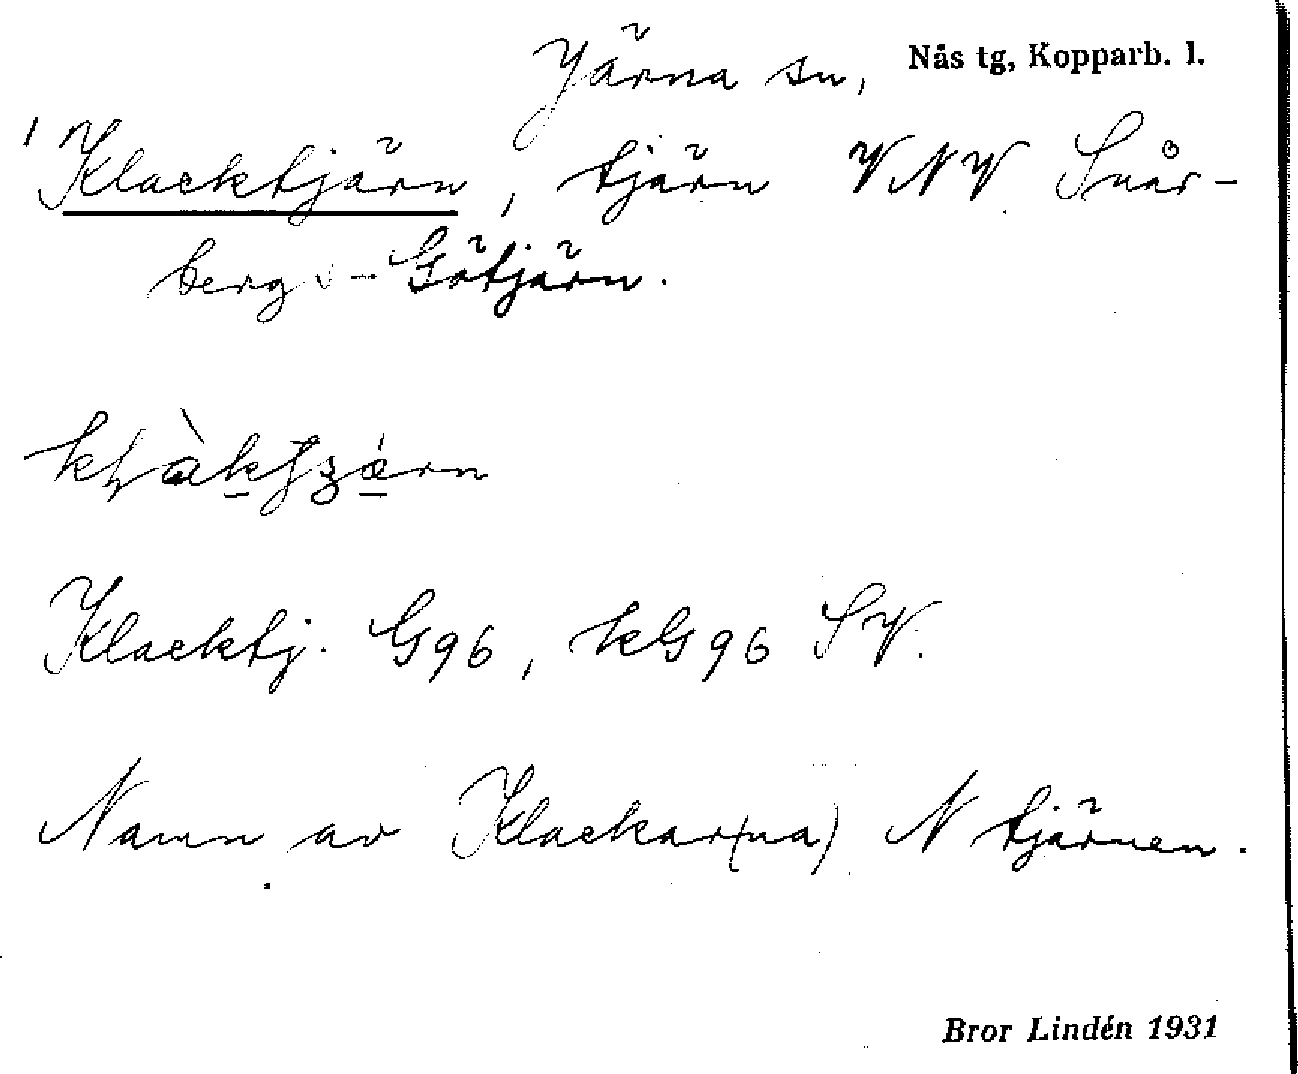 Järna sn, Nås tg, Kopparb. l.
1 Klacktjärn, tjärn VNV Snår-
bergs-Götjärn.
Klacktj. G96, kG96 SV.
Namn av Klackar(na) N tjärnen.
Bror Lindén 1931